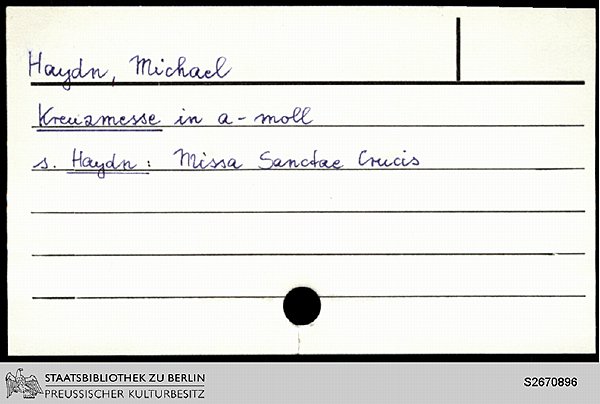 Haydn, Michael
Kreuzmesse in a-moll
s. Haydn: Missa Sanctae Crucis
STAATSBIBLIOTHEK ZU BERLIN
PREUSSISCHER KULTURBESITZ
S2670896